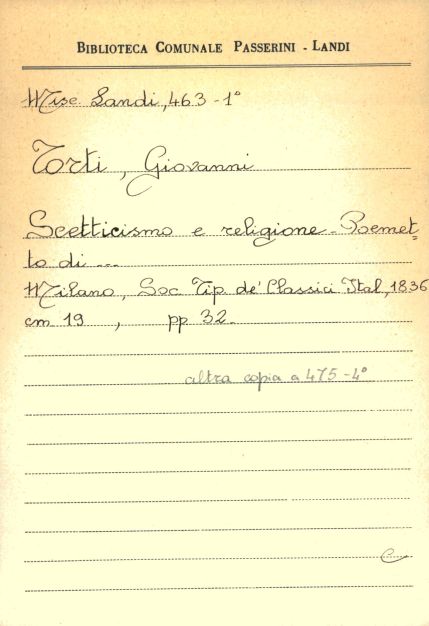 BIBLIOTECA COMUNALE PASSERINI - LANDI
Misc. Landi, 463 - 1°
Torti, Giovanni
Scetticismo e religione - Poemet=
to di ...
Milano, Soc. Tip. de' Classici Ital, 1836
cm 19 , pp 32.
altra copia a 475 - 4°
C